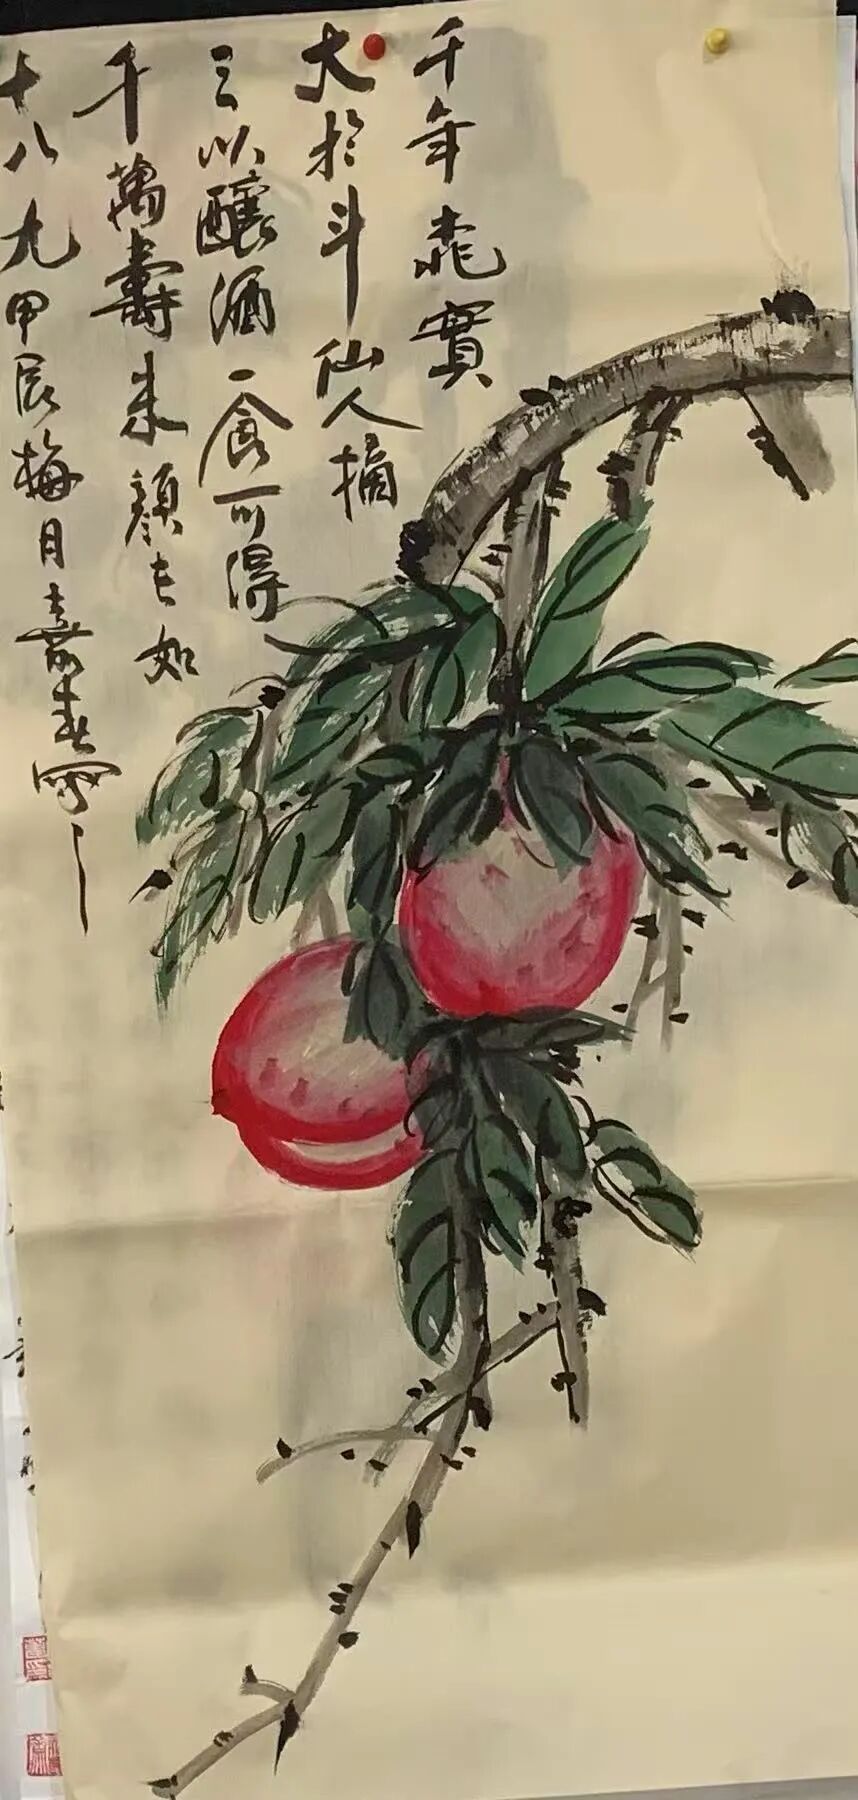 千年桃實
大於斗仙人摘
之以釀酒一食可得
千萬壽朱顏长如
十八九甲辰梅月春寫